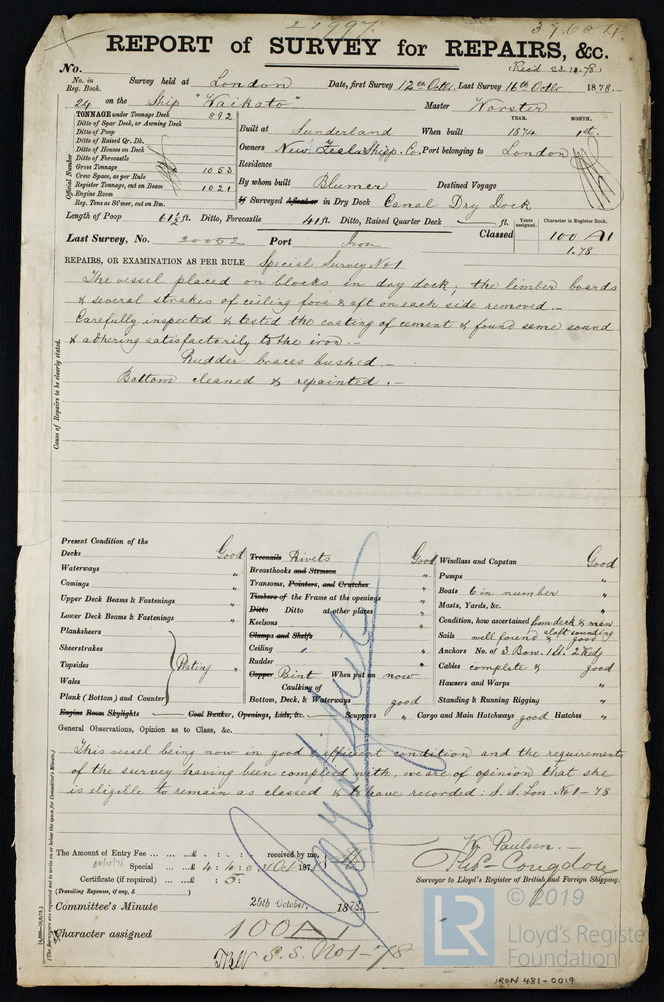 21997.
39.684
REPORT of SURVEY for REPAIRS, &c.
No.
(Recd 23.10.78)
No. in Reg. Book.
Survey held at London Date, first Survey 12th Octbr. Last Survey 16th Octbr 1878.
24 on the Ship "Waikato" Master Worster
TONNAGE under Tonnage Deck 892
Ditto of Spar Deck, or Awning Deck
Ditto of Poop
Ditto of Raised Qr. Dk.
Ditto of Houses on Deck
Ditto of Forecastle
Gross Tonnage 1053
Crew Space, as per Rule
Register Tonnage, cut on Beam 1021
Engine Room
Reg. Tons as St'mer, cut on Bm.
Official Number
YEAR. MONTH.
Built at Sunderland When built 1874 1st.
Owners New Zeal. Shipp. Co. Port belonging to London
Residence
By whom built Blumer Destined Voyage
If Surveyed Afloat or in Dry Dock Canal Dry Dock
Length of Poop 61½ ft. Ditto, Forecastle 41 ft. Ditto, Raised Quarter Deck ft.
Years assigned. Character in Register Book.
Last Survey, No. 20052 Port Iron Classed 100 A1
1.78
REPAIRS, OR EXAMINATION AS PER RULE Special Survey No 1
The vessel placed on blocks in dry dock; the limber boards
& several strakes of ceiling fore & aft on each side removed.
Carefully inspected & tested the coating of cement & found same sound
& adhering satisfactorily to the iron.
Rudder braces bushed
Bottom cleaned & repainted.
Cause of Repairs to be clearly stated.
Present Condition of the
Decks Good
Waterways "
Comings "
Upper Deck Beams & Fastenings "
Lower Deck Beams & Fastenings "
Planksheers
Sheerstrakes
Topsides
Wales
Plank (Bottom) and Counter
Plating "
Engine Room Skylights Coal Bunker, Openings, Lids, &c. Scuppers " Cargo and Main Hatchways good Hatches "
Treenails Rivets Good
Breasthooks and Stemson "
Transoms, Pointers, and Crutches "
Timbers of the Frame at the openings "
Ditto Ditto at other places "
Keelsons "
Clamps and Shelfs
Ceiling "
Rudder "
Copper Paint When put on now
Caulking of
Bottom, Deck, & Waterways good
Windlass and Capstan Good
Pumps "
Boats 6 in number "
Masts, Yards, &c. "
Condition, how ascertained from deck & man
aloft sounding
Sails well found & good
Anchors No. of 3 Bow. 1 St. 2 Kedg
Cables complete & good
Hawsers and Warps "
Standing & Running Rigging "
General Observations, Opinion as to Class, &c.
This vessel being now in good & efficient condition and the requirements
of the survey having been complied with, we are of opinion that she
is eligible to remain as classed & to have recorded: S.S. Lon No 1 - 78
The Amount of Entry Fee ... ... ... £ : : received by me,
Special ... ... £ 4 : 4 : 0 Oct 187
Certificate (if required) ... £ : 5 :
(Travelling Expenses, if any, £ )
Paulsen.
Thos Congdon
Surveyor to Lloyd's Register of British and Foreign Shipping.
Committee's Minute 25th October, 1878.
Character assigned 100 A1
S.S. No 1 - 78
(The Surveyors are requested not to write on or below the space for Committee's Minute.)
© 2019
LR
Lloyd's Register
Foundation
IRON 481-0019